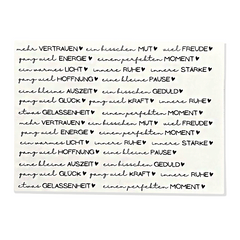 mehr VERTRAUEN♥ ein bisschen MUT♥ viel FREUDE♥
ganz viel ENERGIE♥ einen perfekten MOMENT♥
ein warmes LICHT♥ innere RUHE♥ innere STÄRKE♥
ganz viel HOFFNUNG♥ eine kleine PAUSE♥
eine kleine AUSZEIT♥ ein bisschen GEDULD♥
ganz viel GLÜCK♥ ganz viel KRAFT♥ innere RUHE♥
etwas GELASSENHEIT♥ einen perfekten MOMENT♥
mehr VERTRAUEN♥ ein bisschen MUT♥ viel FREUDE♥
ganz viel ENERGIE♥ einen perfekten MOMENT♥
ein warmes LICHT♥ innere RUHE♥ innere STÄRKE♥
ganz viel HOFFNUNG♥ eine kleine PAUSE♥
eine kleine AUSZEIT♥ ein bisschen GEDULD♥
ganz viel GLÜCK♥ ganz viel KRAFT♥ innere RUHE♥
etwas GELASSENHEIT♥ einen perfekten MOMENT♥